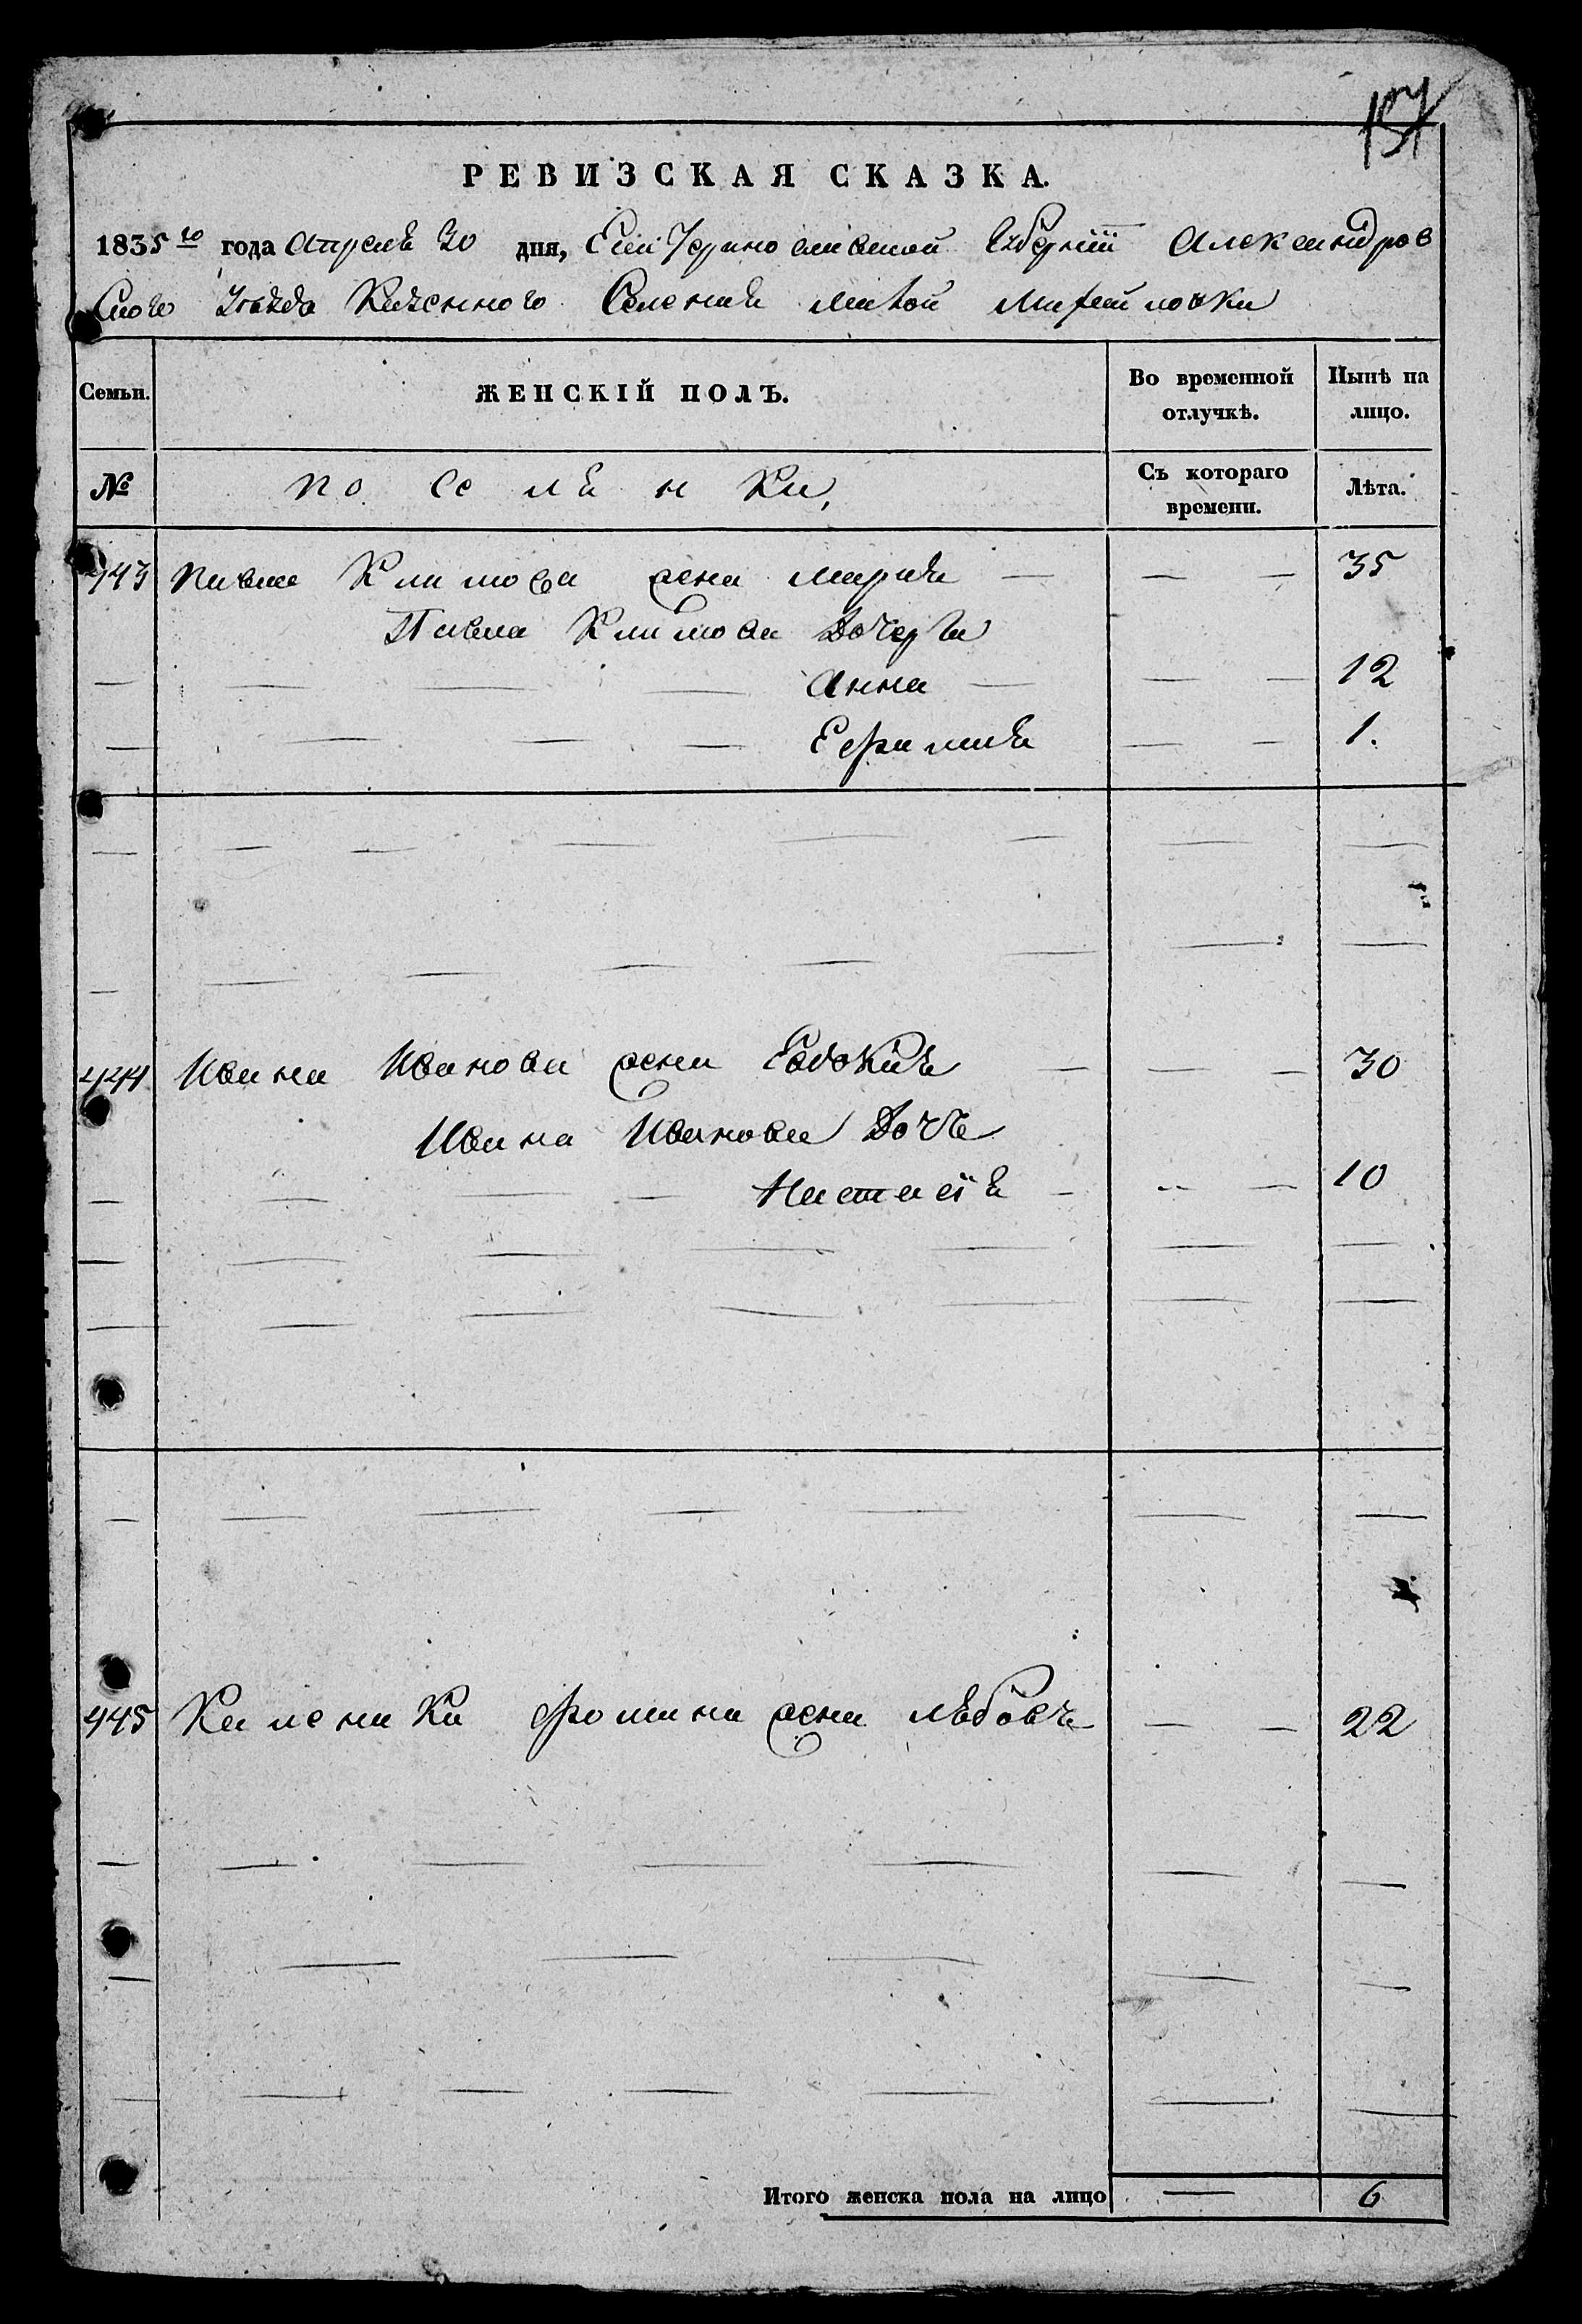 157
РЕВИЗСКАЯ СКАЗКА.
1835го года апреля 30 дня, Екатеринославской Губернии Александров
ского Уезда Казенного Селения малой Михайловки
Семьи. ЖЕНСКІЙ ПОЛЪ. Во временной отлучкѣ. Нынѣ на лицо.
№ поселянки, Съ котораго времени. Лѣта.
443 Павла Климова жена Мария — — — 35
Павла Климова дочери
— — — — Анна — — — 12
— — — — Ефимия — — 1.
444 Ивана Иванова жена Евдокия — — — 30
Ивана Иванова дочь
— — — — Настасія — — — 10
445 Каленика Фомина жена любовь — — 22
Итого женска пола на лицо — 6